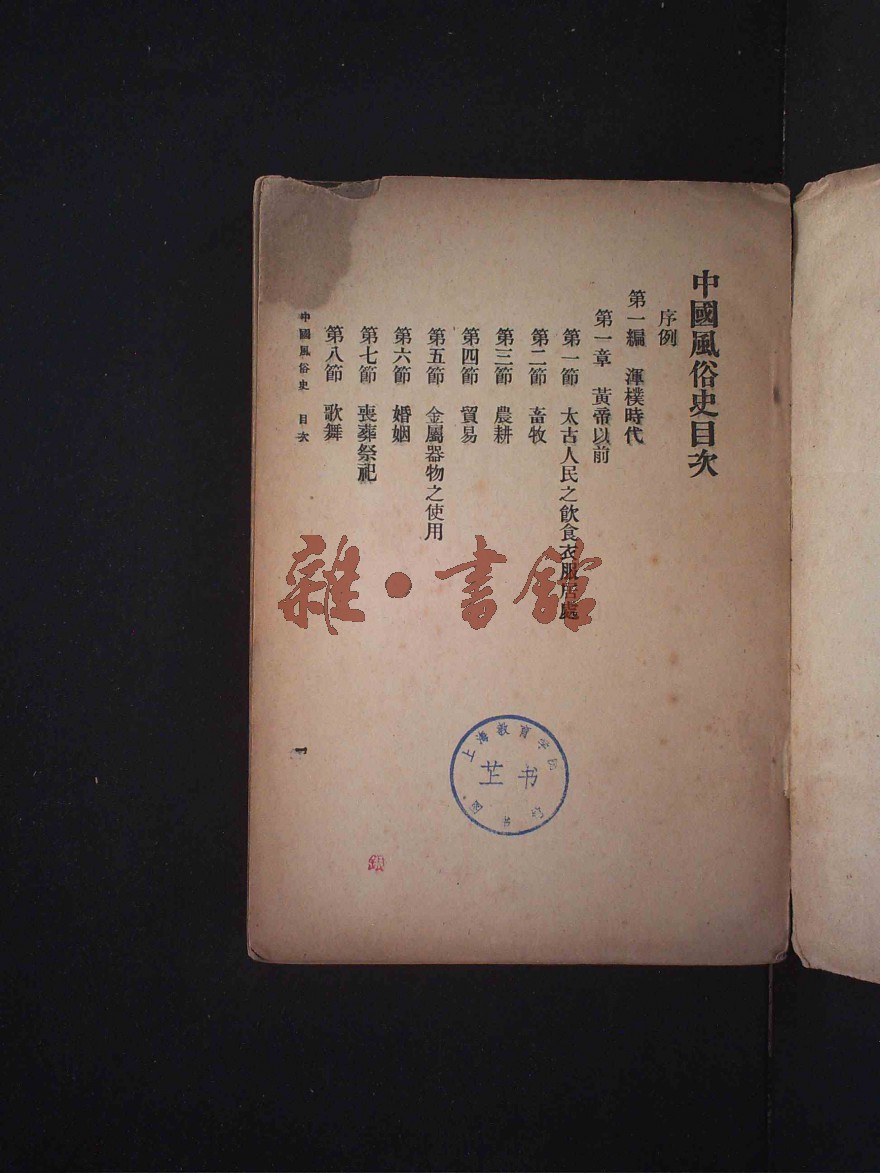 中國風俗史目次
序例
第一編　渾樸時代
第一章　黃帝以前
第一節　太古人民之飲食衣服居處
第二節　畜牧
第三節　農耕
第四節　貿易
第五節　金屬器物之使用
第六節　婚姻
第七節　喪葬祭祀
第八節　歌舞
中國風俗史　目次
一
雜·書館
上海教育学院
图书馆